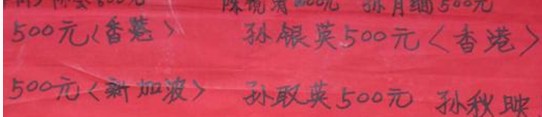 孙月娟500元
500元〈香港〉 孙银英500元〈香港〉
500元〈新加波〉 孙取英500元 孙秋映